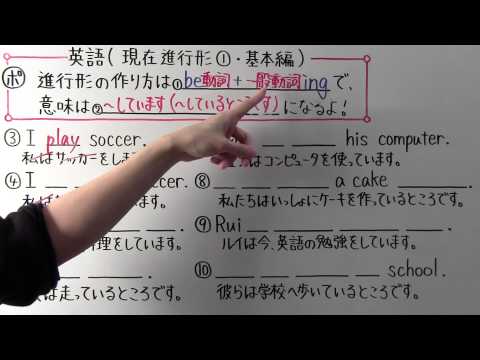 英語(現在進行形①・基本編)
ポ 進行形の作り方は①be動詞+一般動詞ingで、
意味は②〜しています(〜しているところです)になるよ!
③ I play soccer.
私はサッカーをしま
④ I __ __ ccer.
私は
__ __ __ __.
理をしています。
__ __ __.
は走っているところです。
__ __ __ his computer.
はコンピュータを使っています。
⑧ __ __ __ a cake ____.
私たちはいっしょにケーキを作っているところです。
⑨ Rui __ __ __ __.
ルイは今、英語の勉強をしています。
⑩ __ __ __ __ school.
彼らは学校へ歩いているところです。